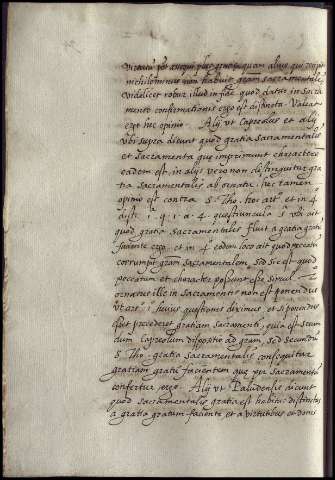 virtutu
nichilominus non habuit gram sacramentale
videlicet robur illud in fide quod datur in sacra
mento confirmationis ergo est distincta. Valeat
ergo hec opinio. Alij vt Capreolus et alij
vbi supra dicunt quod gratia sacramentalis
et sacramenta que imprimunt characterē
eadem est in alijs vero non distinguitur gra
tia sacramentalis ab ornatu. hec tamen
opinio est contra s. Tho. art. et in 4
dist. 1. q. 1. a. 4. questiuncula 5 vbi ait
quod gratia sacramentalis fluit a gratia gratū
faciente ergo. et in 4 eodem loco ait quod peccatū
corrumpit gram sacramentalem sed sic est quod
peccatum et character possunt esse simul.
ornatus ille in sacramentis non est ponendus
vt art. 1 huius questionis diximus et si ponendus
esset precederet gratiam sacramenti, quia est secun
dum Capreolum dispositio ad gram sed secundū
s. Tho. gratia sacramentalis consequitur
gratiam gratū facientem que per sacramenta
confertur ergo. Alij vt Paludensis dicunt
quod sacramentalis gratia est habitus distinctus
a gratia gratum faciente et a virtutibus et donis